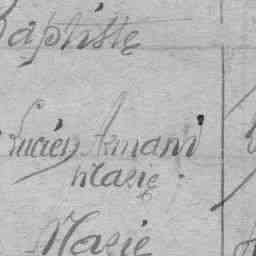 Baptiste
Lucien Armand
Marie
Marie